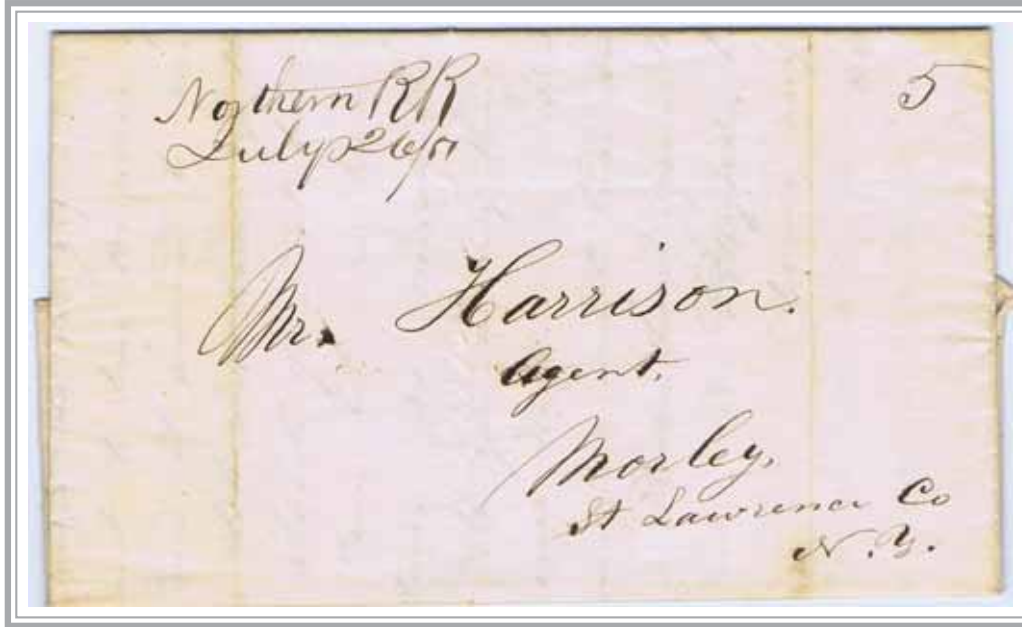 Northern RR
July 26/51
5
Mr. Harrison.
Agent,
Morley,
St Lawrence Co
N.Y.